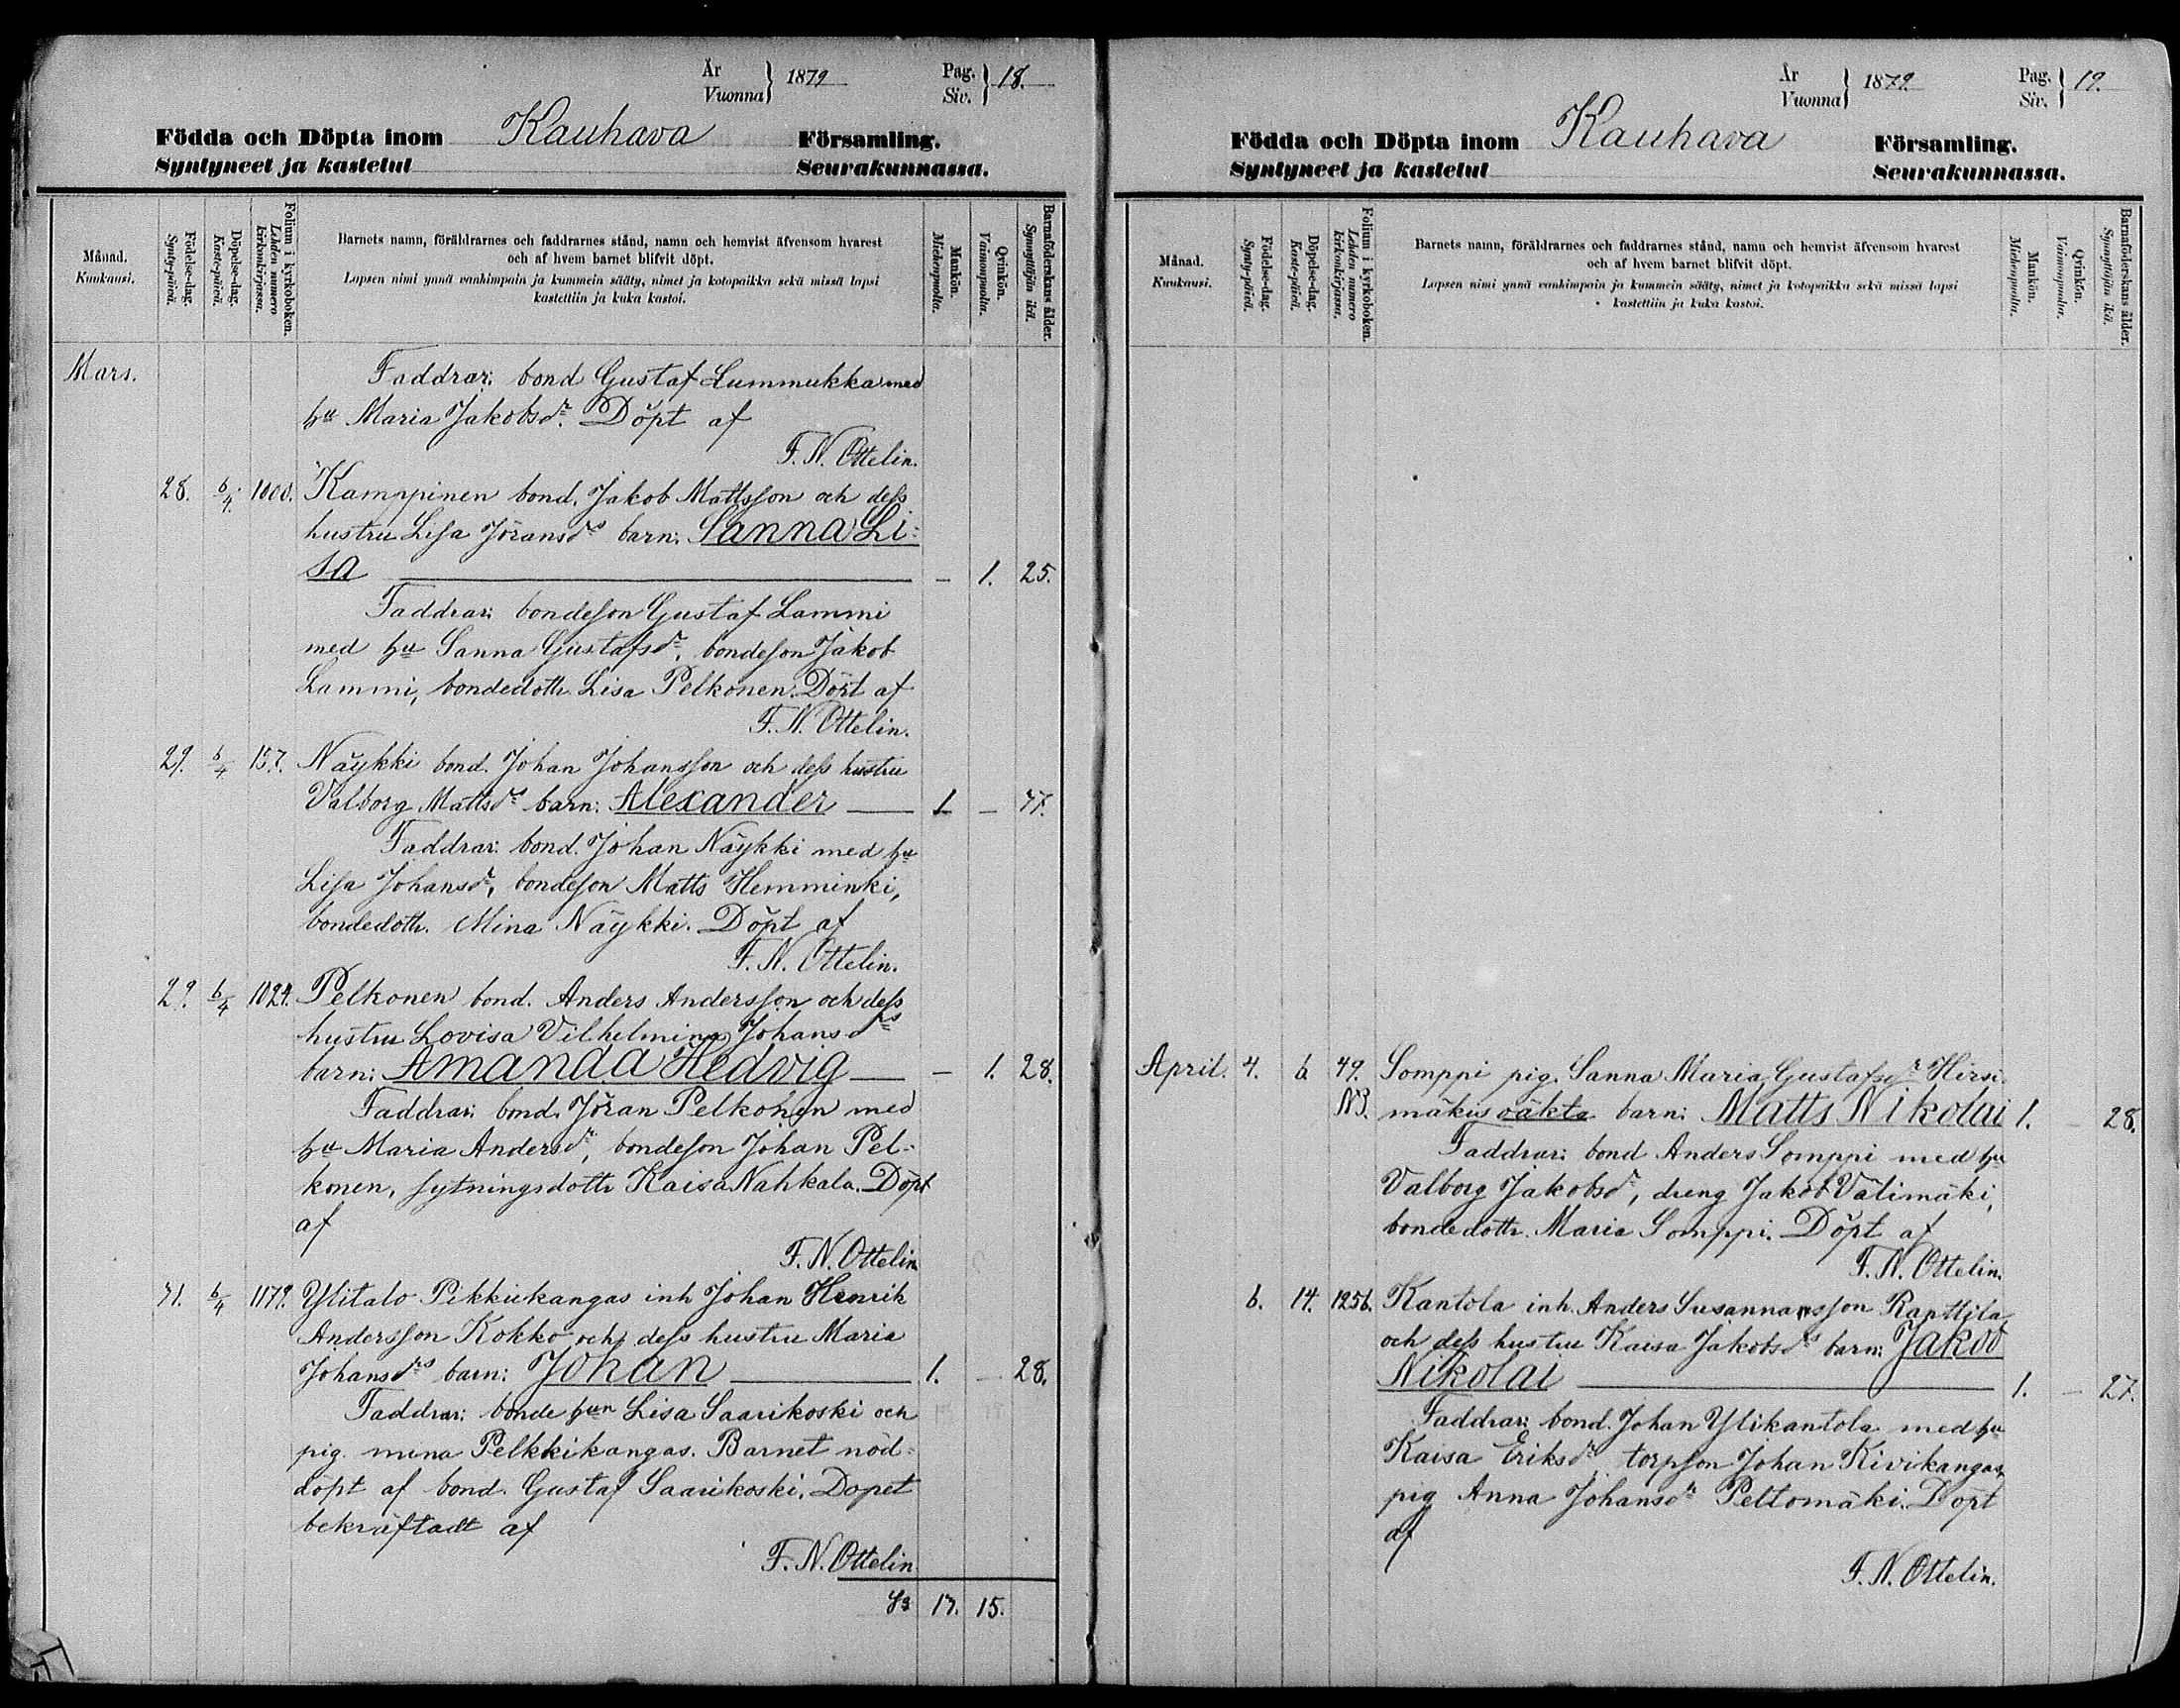 År
Vuonna } 1879 Pag.
Siv. } 18.
Födda och Döpta inom Kauhava Församling.
Syntyneet ja kastetut Seurakunnassa.
Månad.
Kuukausi.
Födelse-dag.
Synty-päivä.
Döpelse-dag.
Kaste-päivä.
Folium i kyrkoboken.
Lehden numero
kirkonkirjassa.
Barnets namn, föräldrarnes och faddrarnes stånd, namn och hemvist äfvensom hvarest
och af hvem barnet blifvit döpt.
Lapsen nimi ynnä vanhimpain ja kummein sääty, nimet ja kotopaikka sekä missä lapsi
kastettiin ja kuka kastoi.
Mankön.
Miehenpuolta.
Qvinkön.
Vaimonpuolta.
Barnaföderskans ålder.
Synnyttäjän ikä.
Mars. Faddrar: bond Gustaf Lummukka med
hu Maria Jakobsdr. Döpt af
F. N. Ottelin.
28. 6/4. 1000. Kamppinen bond. Jakob Mattsson och dess
hustru Lisa Jöransdrs barn: Sanna Li-
sa — 1. 25.
Faddrar: bondeson Gustaf Lammi
med hu Sanna Gustafsdr, bondeson Jakob
Lammi, bondedottr. Lisa Pelkonen. Döpt af
F. N. Ottelin.
29. 6/4 157. Näykki bond. Johan Johansson och dess hustru
Valborg Mattsdrs barn: Alexander 1 — 47.
Faddrar: bond. Johan Näykki med hu
Lisa Johansdr, bondeson Matts Hemminki,
bondedottr. Mina Näykki. Döpt af
F. N. Ottelin.
29. 6/4 1024. Pelkonen bond. Anders Andersson och dess
hustru Lovisa Vilhelmina Johansdrs
barn: Amanda Hedvig — 1. 28.
Faddrar: bond. Jöran Pelkonen med
hu Maria Andersdr, bondeson Johan Pel-
konen, sytningsdottr Kaisa Nahkala. Döpt
af
F. N. Ottelin
31. 6/4 1179. Ylitalo Pikkukangas inh Johan Henrik
Andersson Kokko och dess hustru Maria
Johansdrs barn: Johan 1. — 28.
Faddrar: bonde hun Lisa Saarikoski och
pig. mina Pelkkikangas. Barnet nöd-
döpt af bond. Gustaf Saarikoski. Dopet
bekräftadt af
F. N. Ottelin.
17. 15.
År
Vuonna } 1879. Pag.
Siv. } 19.
Födda och Döpta inom Kauhava Församling.
Syntyneet ja kastetut Seurakunnassa.
Månad.
Kuukausi.
Födelse-dag.
Synty-päivä.
Döpelse-dag.
Kaste-päivä.
Folium i kyrkoboken.
Lehden numero
kirkonkirjassa.
Barnets namn, föräldrarnes och faddrarnes stånd, namn och hemvist äfvensom hvarest
och af hvem barnet blifvit döpt.
Lapsen nimi ynnä vanhimpain ja kummein sääty, nimet ja kotopaikka sekä missä lapsi
kastettiin ja kuka kastoi.
Mankön.
Miehenpuolta.
Qvinkön.
Vaimonpuolta.
Barnaföderskans ålder.
Synnyttäjän ikä.
April. 4. 6. 49. Somppi pig. Sanna Maria Gustafsdr Hirsi-
N3. mäkis oäkta barn: Matts Nikolai 1. — 28.
Faddrar: bond Anders Somppi med hu
Valborg Jakobsdr, dreng Jakob Välimäki,
bondedottr. Maria Somppi. Döpt af
F. N. Ottelin.
6. 14. 1256. Kantola inh. Anders Susannansson Ranttila
och dess hustru Kaisa Jakobsdrs barn: Jakob
Nikolai 1. — 27.
Faddrar: bond. Johan Ylikantola med hu
Kaisa Eriksdr torpson Johan Kivikangas,
pig Anna Johansdr Peltomäki. Döpt
af
F. N. Ottelin.